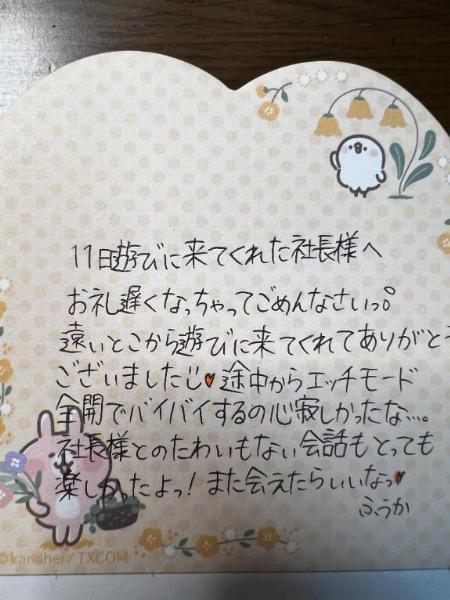 11日遊びに来てくれた社長様へ
お礼遅くなっちゃってごめんなさいっ。
遠いとこから遊びに来てくれてありがとう
ございました♥途中からエッチモード
全開でバイバイするの心寂しかったな…。
社長様とのたわいもない会話もとっても
楽しかったよっ!また会えたらいいなっ♥
ふうか
©kanahei / TXCOM